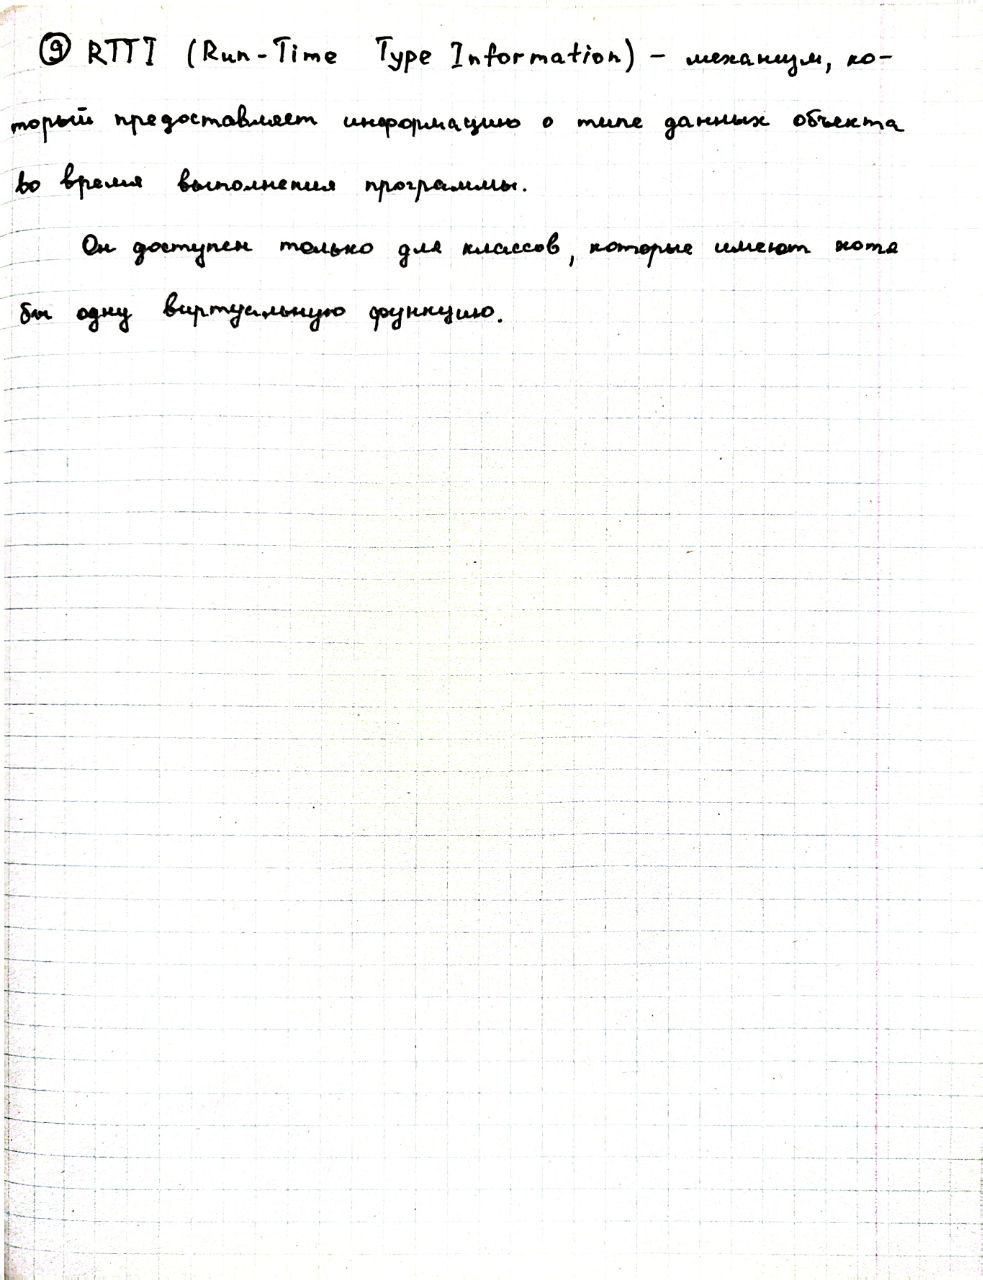 ⑨ RTTI (Run-Time Type Information) – механизм, ко-
торый предоставляет информацию о типе данных объекта
во время выполнения программы.
Он доступен только для классов, которые имеют хотя
бы одну виртуальную функцию.